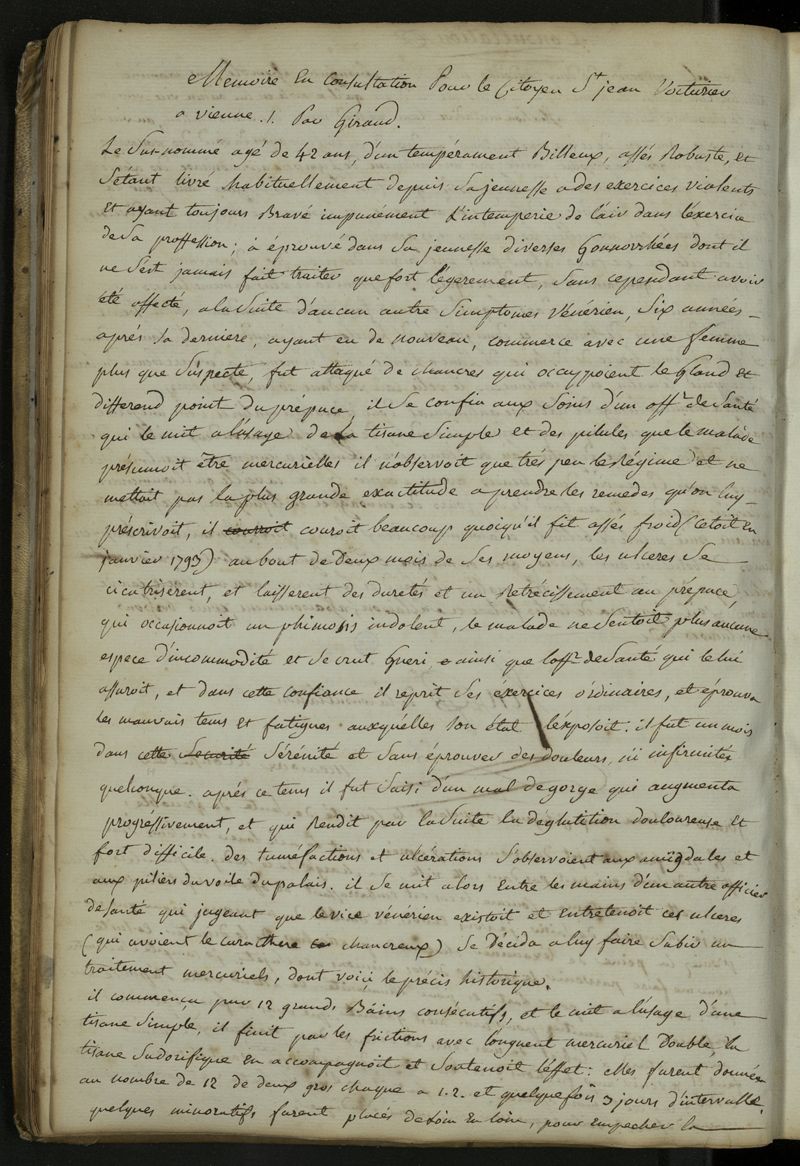 Memoire En Consultation Pour le Citoyen St jean Voiturier
a vienne .1. Par Giraud.
Le Sus-nommé agé de 42 ans, d'un tempérament Billeux, assés Robuste, et
S'étant livré habituellement depuis Sa jeunesse a des exercices violents
Et ayant toujours Bravé impunément L'intemperie de l'air dans l'exercice
de Sa proffession; à éprouvé dans Sa jeunesse diverses Gonnorrhées dont il
ne S'est jamais fait traiter que fort légerement, Sans cependant avoir
été affecté, a la Suite d'aucun autre Simptomes Vénérien, Six années
aprés la derniere, ayant eu de nouveau, commerce avec une femme
plus que Suspecte, fut attaqué de chancres qui occuppoient le Gland et
differend point du prépuce, il Se confia aux Soins d'un offr. de Santé
qui le mit a l'usage de La tisane Simple et des pilules que le malade
présumoit être mercurielles il n'observoit que trés peu le Régime et ne
mettoit pas la plus grande exactitude a prendre les remedes qu'on luy
préscrivoit, il courroit couroit beaucoup quoiqu'il fit assés froid (c'etoit en
janvier 1793) au bout de Deux mois de Ses moyens, les ulceres Se
cicatriserent, et laisserent des duretés et un Retrécissement au prépuce,
qui occasionnoit un phimosis indolent, le malade ne Sentoit plus aucune
espece d'incommodité et Se crut Gueri, ainsi que l'offr. de Santé qui le lui
assuroit, et dans cette confiance il reprit Ses éxercices ordinaires, et éprouva
les mauvais tems Et fatigues auxquelles Son état l'exposoit. il fut un mois
dans cette Securité Sérénité et Sans éprouver des douleurs, ni infirmités
quelconque. aprés ce tems il fut Saisi d'un mal de gorge qui augmenta
progréssivement, et qui Rendit par la Suite la deglutition douloureuse Et
fort difficile. des tuméfactions et ulcérations S'observoient aux amigdales et
aux piliers du voile du palais. il Se mit alors Entre les mains d'un autre officier
de Santé qui jugeant que le vice vénérien existoit et Entretenoit ces ulceres
(qui avoient le caracthere chancreux) Se Décida a luy faire Subir un
traitement mercuriels, dont voici le précis historique.
il commenca par 12 grands Bains consécutifs, et le mit a l'usage d'une
tisane Simple, il finit par les frictions avec l'onguent mercuriel Double, la
tisane Sudorifique En accompagnoit et Soutenoit l'effet: elles furent données
au nombre de 12 de deux gros chaque a 1.2. et quelque fois 3 jours d'intervalle,
quelques minoratifs furent placés de loin En loin, pour Empecher la